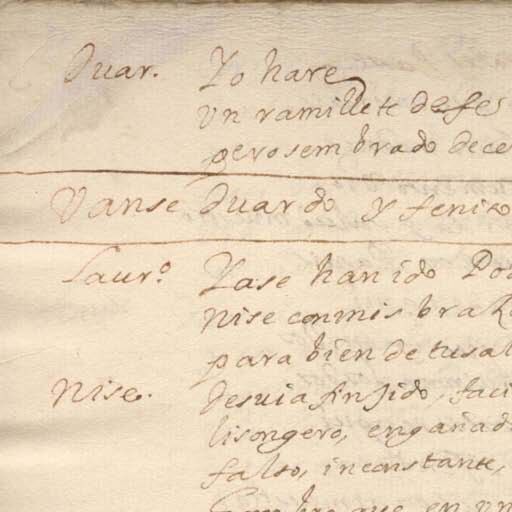 Duar. Yo hare
Vn ramillete de fe
pero sembrado de ce
Vanse Duardo y feniso
Laur.o Ya se han ido Po
Nise con mis braz
para bien de tus a
Nise. Desuia finjido, faci
lisongero, engañad
falso, inconstante,
que en vn